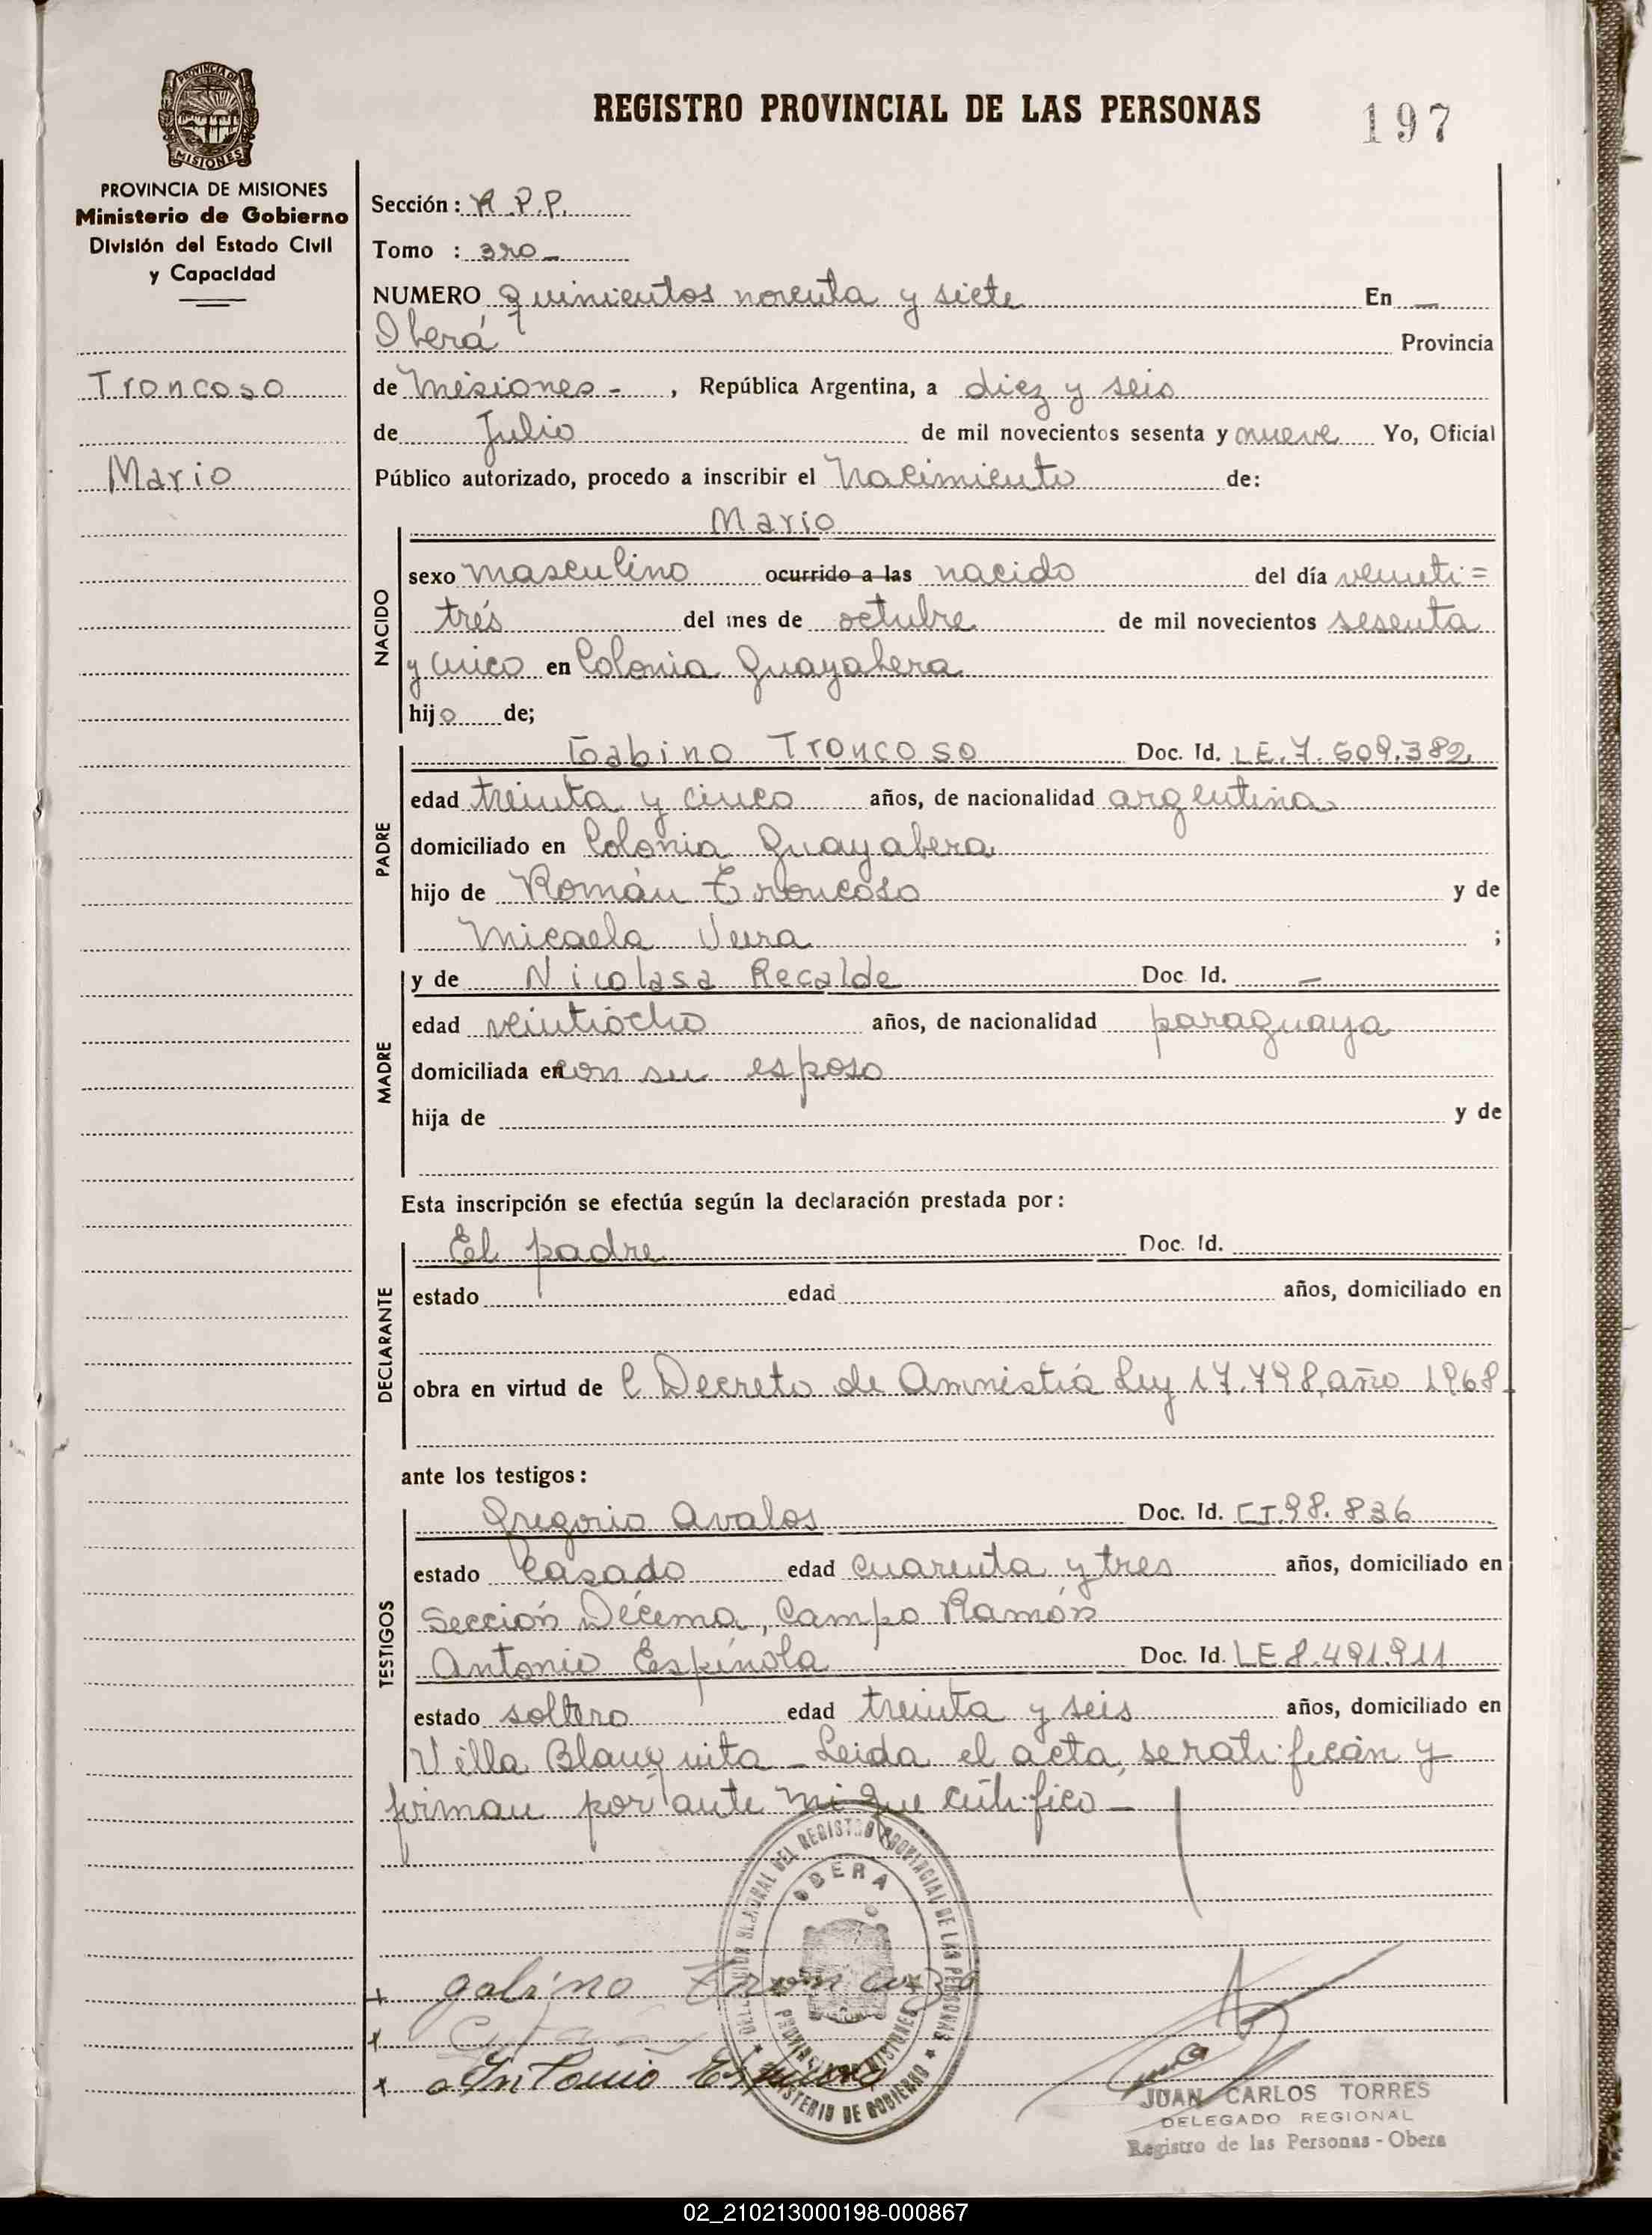 REGISTRO PROVINCIAL DE LAS PERSONAS
197
PROVINCIA DE MISIONES
Ministerio de Gobierno
División del Estado Civil
y Capacidad
Troncoso
Mario
Sección: R.P.P.
Tomo : 3ro
NUMERO Quinientos noventa y siete En —
Oberá Provincia
de Misiones - , República Argentina, a diez y seis
de Julio de mil novecientos sesenta y nueve Yo, Oficial
Público autorizado, procedo a inscribir el Nacimiento de:
NACIDO
Mario
sexo masculino ocurrido a las nacido del día veinti=
trés del mes de octubre de mil novecientos sesenta
y cinco en Colonia Guayabera
hijo de;
PADRE
Gabino Troncoso Doc. Id. LE.7.509.382
edad treinta y cinco años, de nacionalidad argentina
domiciliado en Colonia Guayabera
hijo de Román Troncoso y de
Micaela Vera ;
MADRE
y de Nicolasa Recalde Doc. Id. —
edad veintiocho años, de nacionalidad paraguaya
domiciliada en con su esposo
hija de y de
Esta inscripción se efectúa según la declaración prestada por:
DECLARANTE
El padre Doc. Id.
estado edad años, domiciliado en
obra en virtud de l Decreto de Amnistía Ley 17.798, año 1968
ante los testigos:
TESTIGOS
Gregorio Avalos Doc. Id. CI.98.836
estado Casado edad cuarenta y tres años, domiciliado en
Sección Décima, Campo Ramón
Antonio Espínola Doc. Id. LE 8.491.911
estado soltero edad treinta y seis años, domiciliado en
Villa Blanquita - Leída el acta, se ratifican y
firman por ante mi que certifico -
DELEGACION REGIONAL DEL REGISTRO PROVINCIAL DE LAS PERSONAS
OBERA
PROVINCIA DE MISIONES
MINISTERIO DE GOBIERNO
gabino Troncozo
Antonio Espinola
JUAN CARLOS TORRES
DELEGADO REGIONAL
Registro de las Personas - Obera
02_210213000198-000867